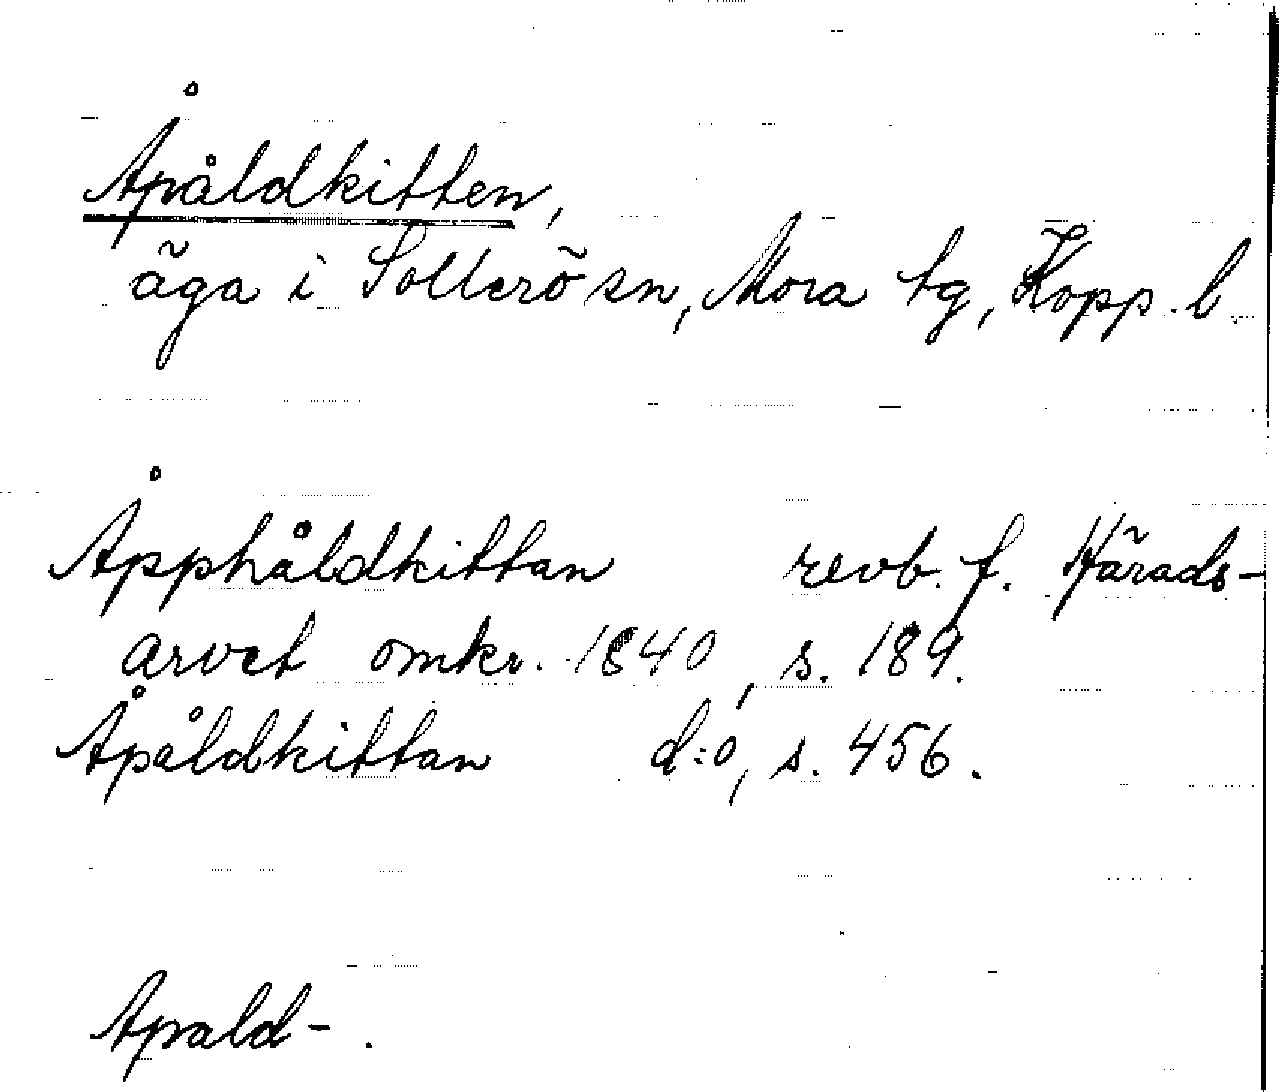 Åpåldkitten,
äga i Sollerö sn, Mora tg, Kopp. l
Åpphåldkittan revb. f. Härads-
arvet omkr. 1840, s. 189.
Åpåldkittan d:o, s. 456.
Apald- .